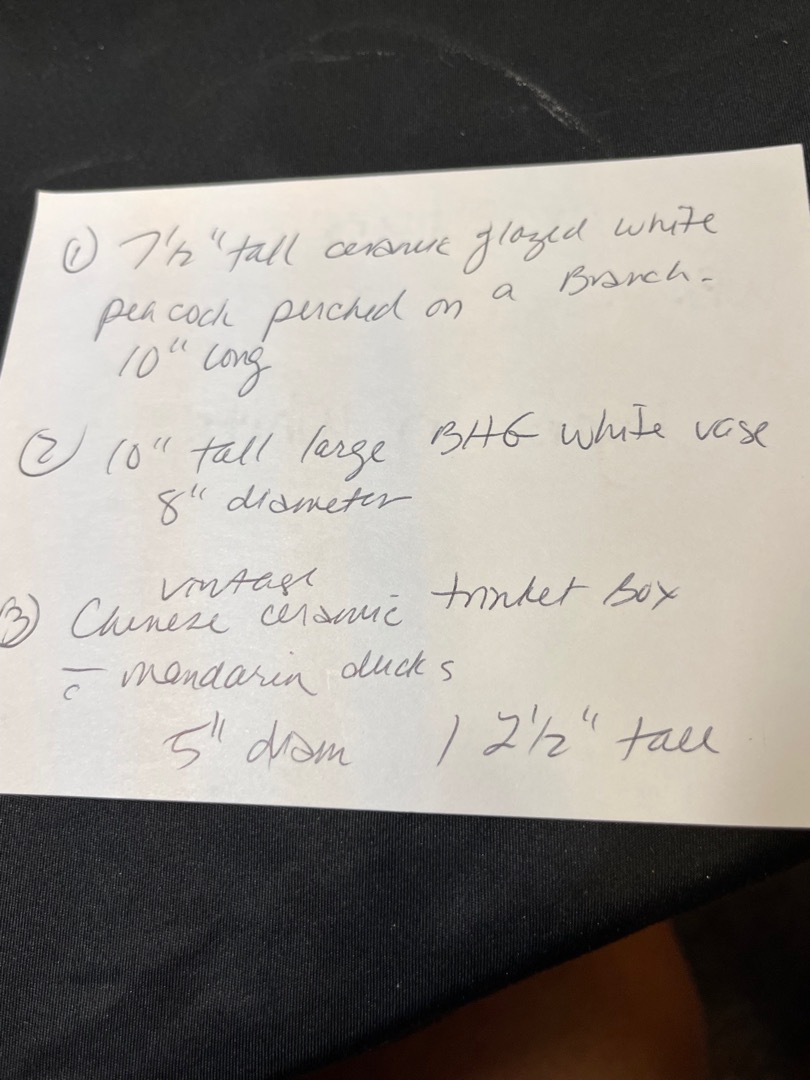 ① 7½" tall ceramic glazed white
peacock perched on a Branch.
10" long
② 10" tall large BHG white vase
8" diameter
vintage
③ Chinese ceramic trinket Box
c̄ mandarin ducks
5" diam / 2½" tall